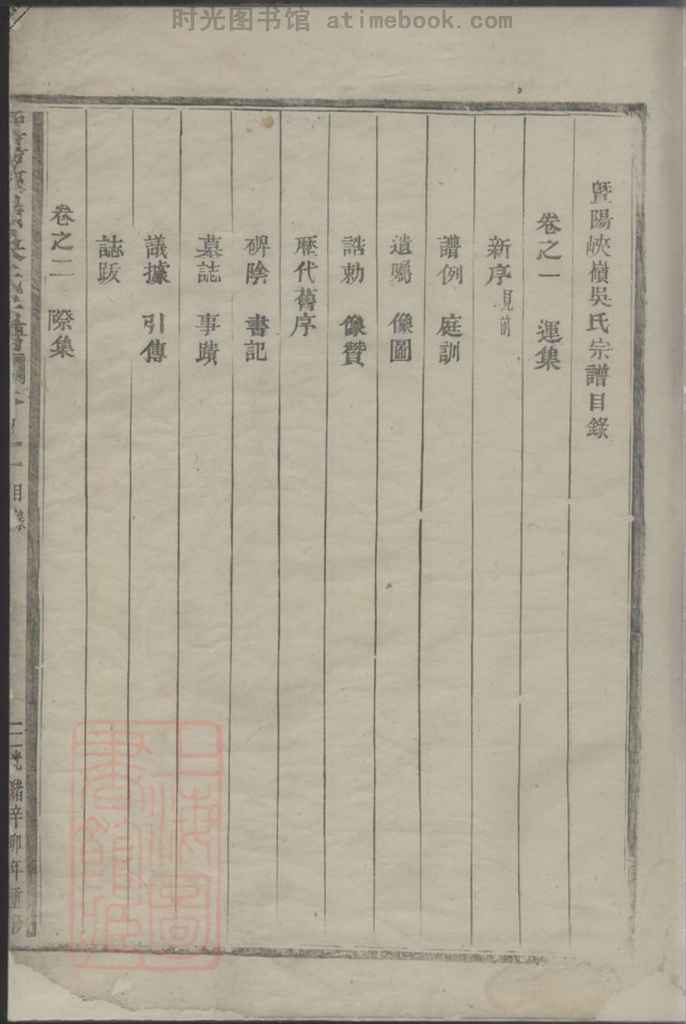 时光图书馆 atimebook.com
暨陽峽嶺吳氏宗譜目錄
卷之一 運集
新序 見前
譜例 庭訓
遺囑 像圖
誥勅 像贊
歷代舊序
碑陰 書記
墓誌 事蹟
議據 引傳
誌跋
卷之二 際集
目錄
光緒辛卯年重修
上海圖書館藏